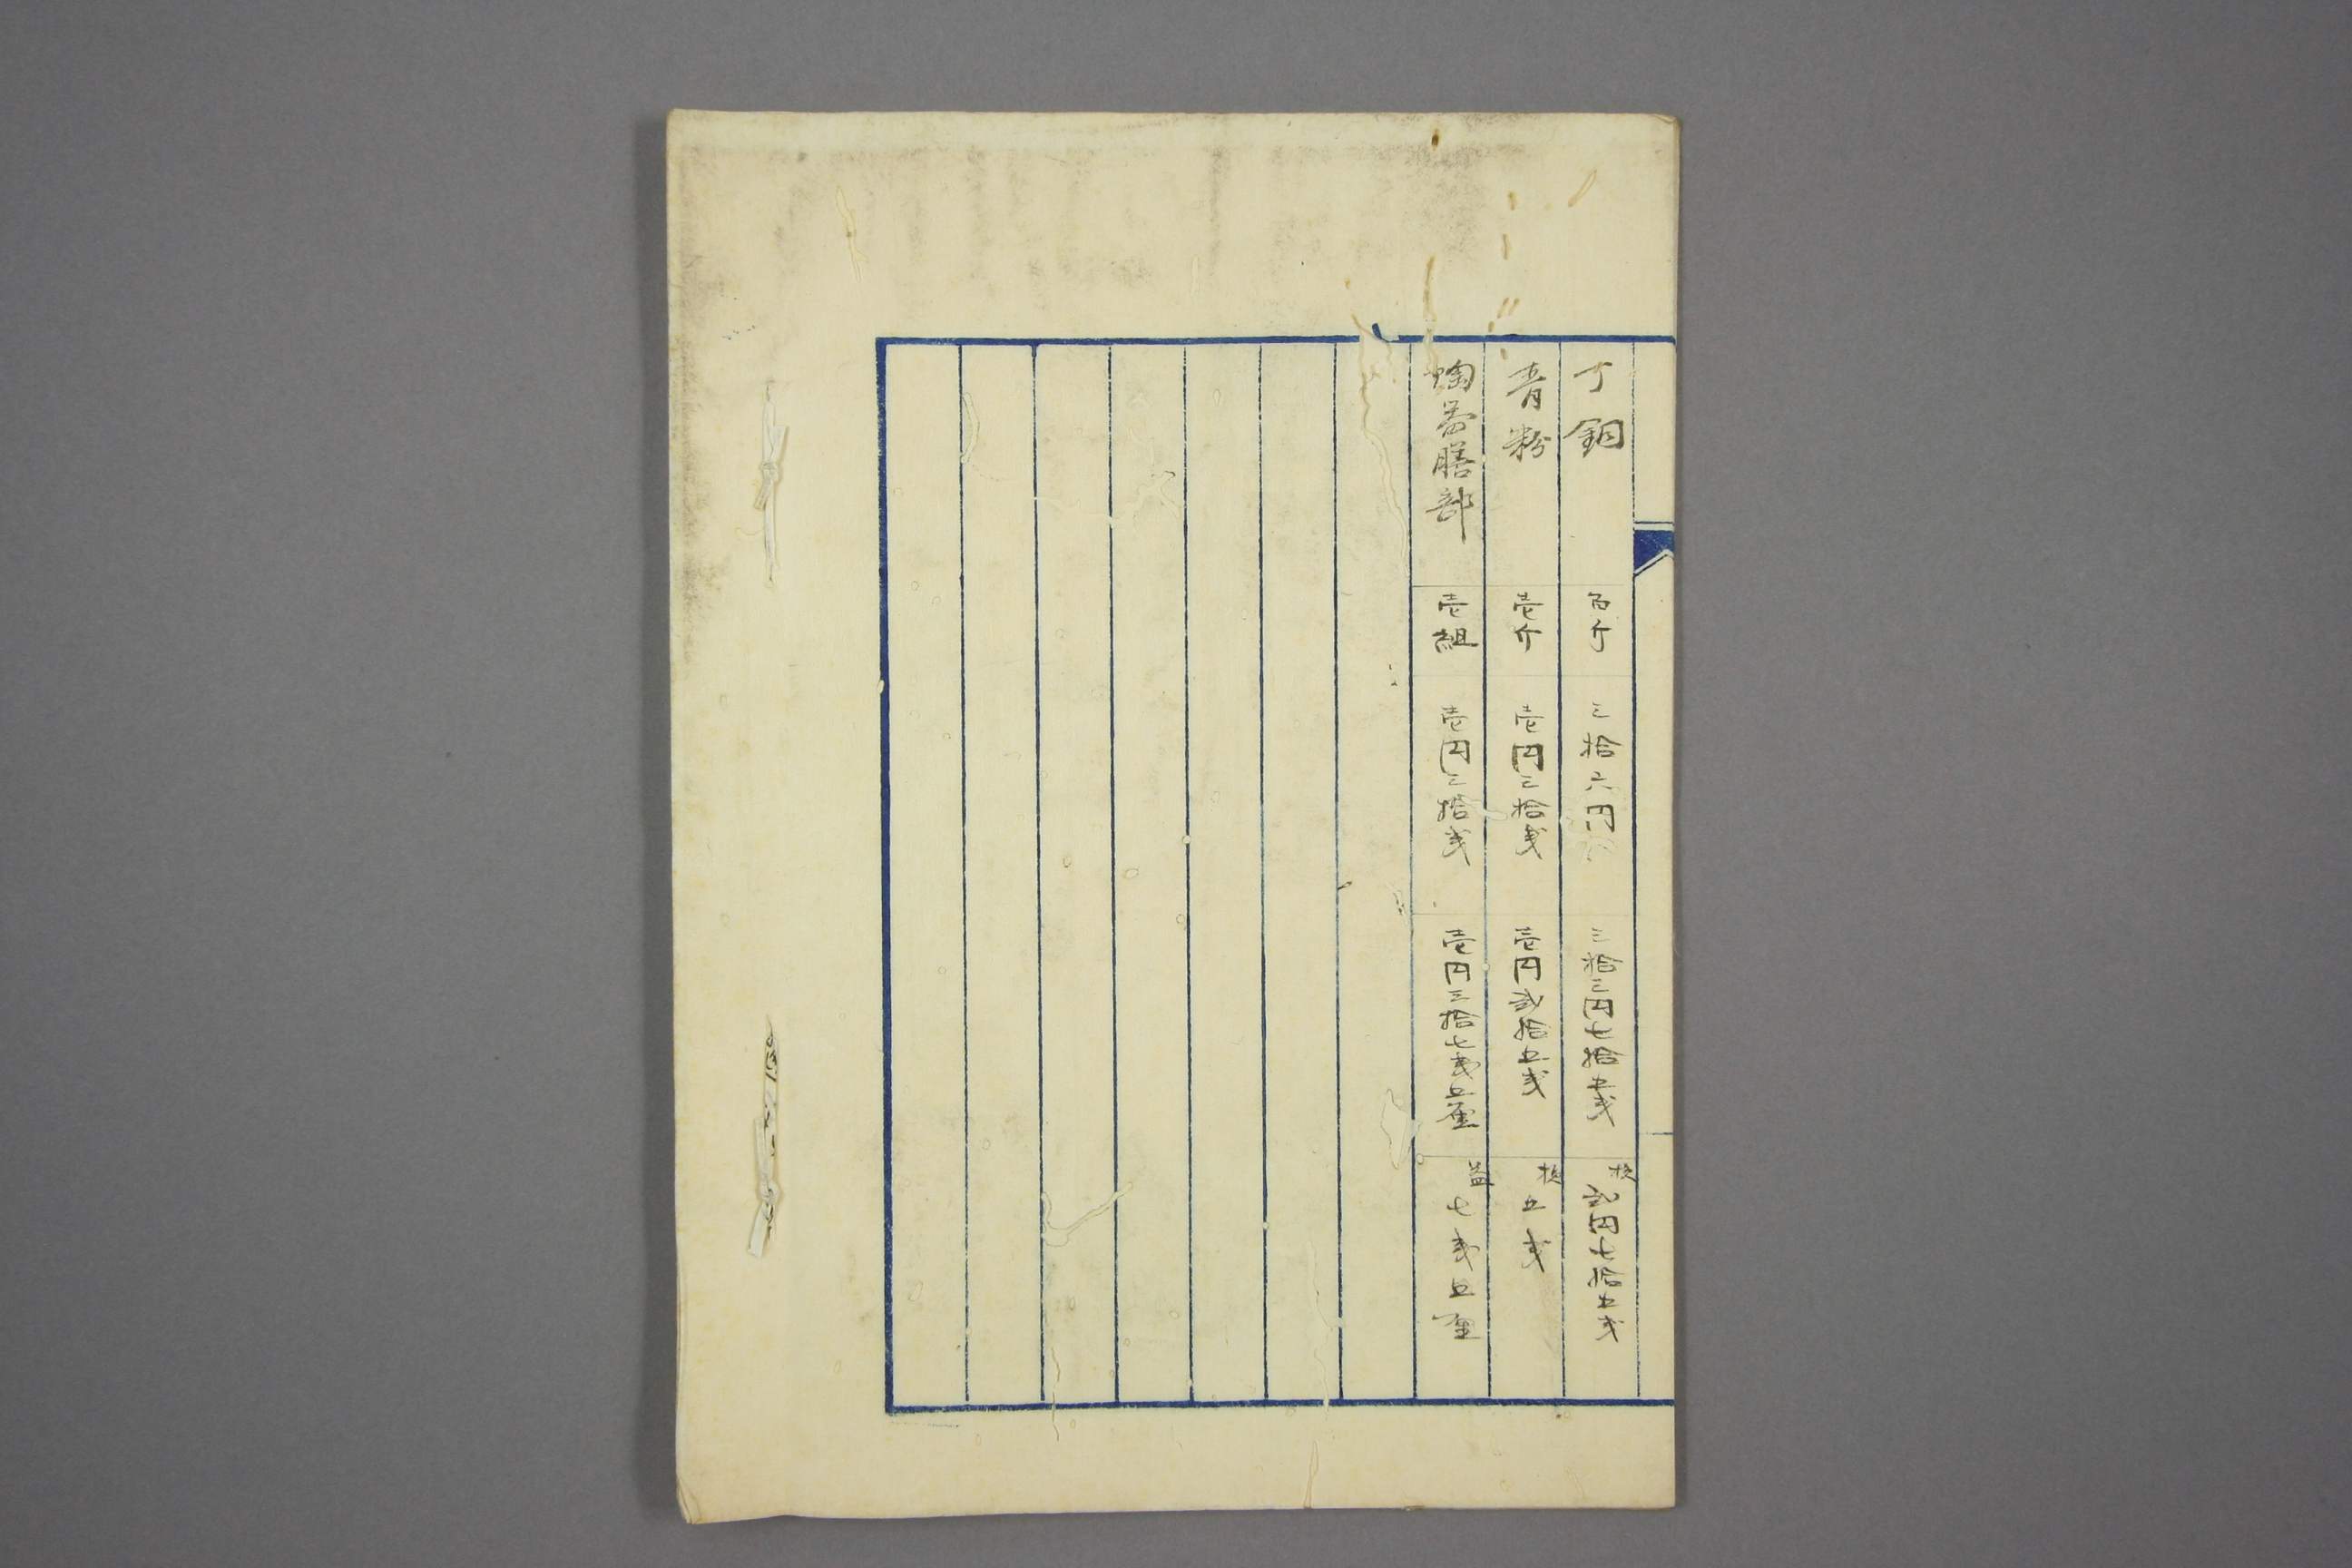 丁銅 百斤 三拾六円 三拾三円七拾五戔 損 弐円七拾五戔
青粉 壱斤 壱円三拾戔 壱円弐拾五戔 損 五戔
陶器膳部 壱組 壱円三拾戔 壱円三拾七戔五厘 益 七戔五厘